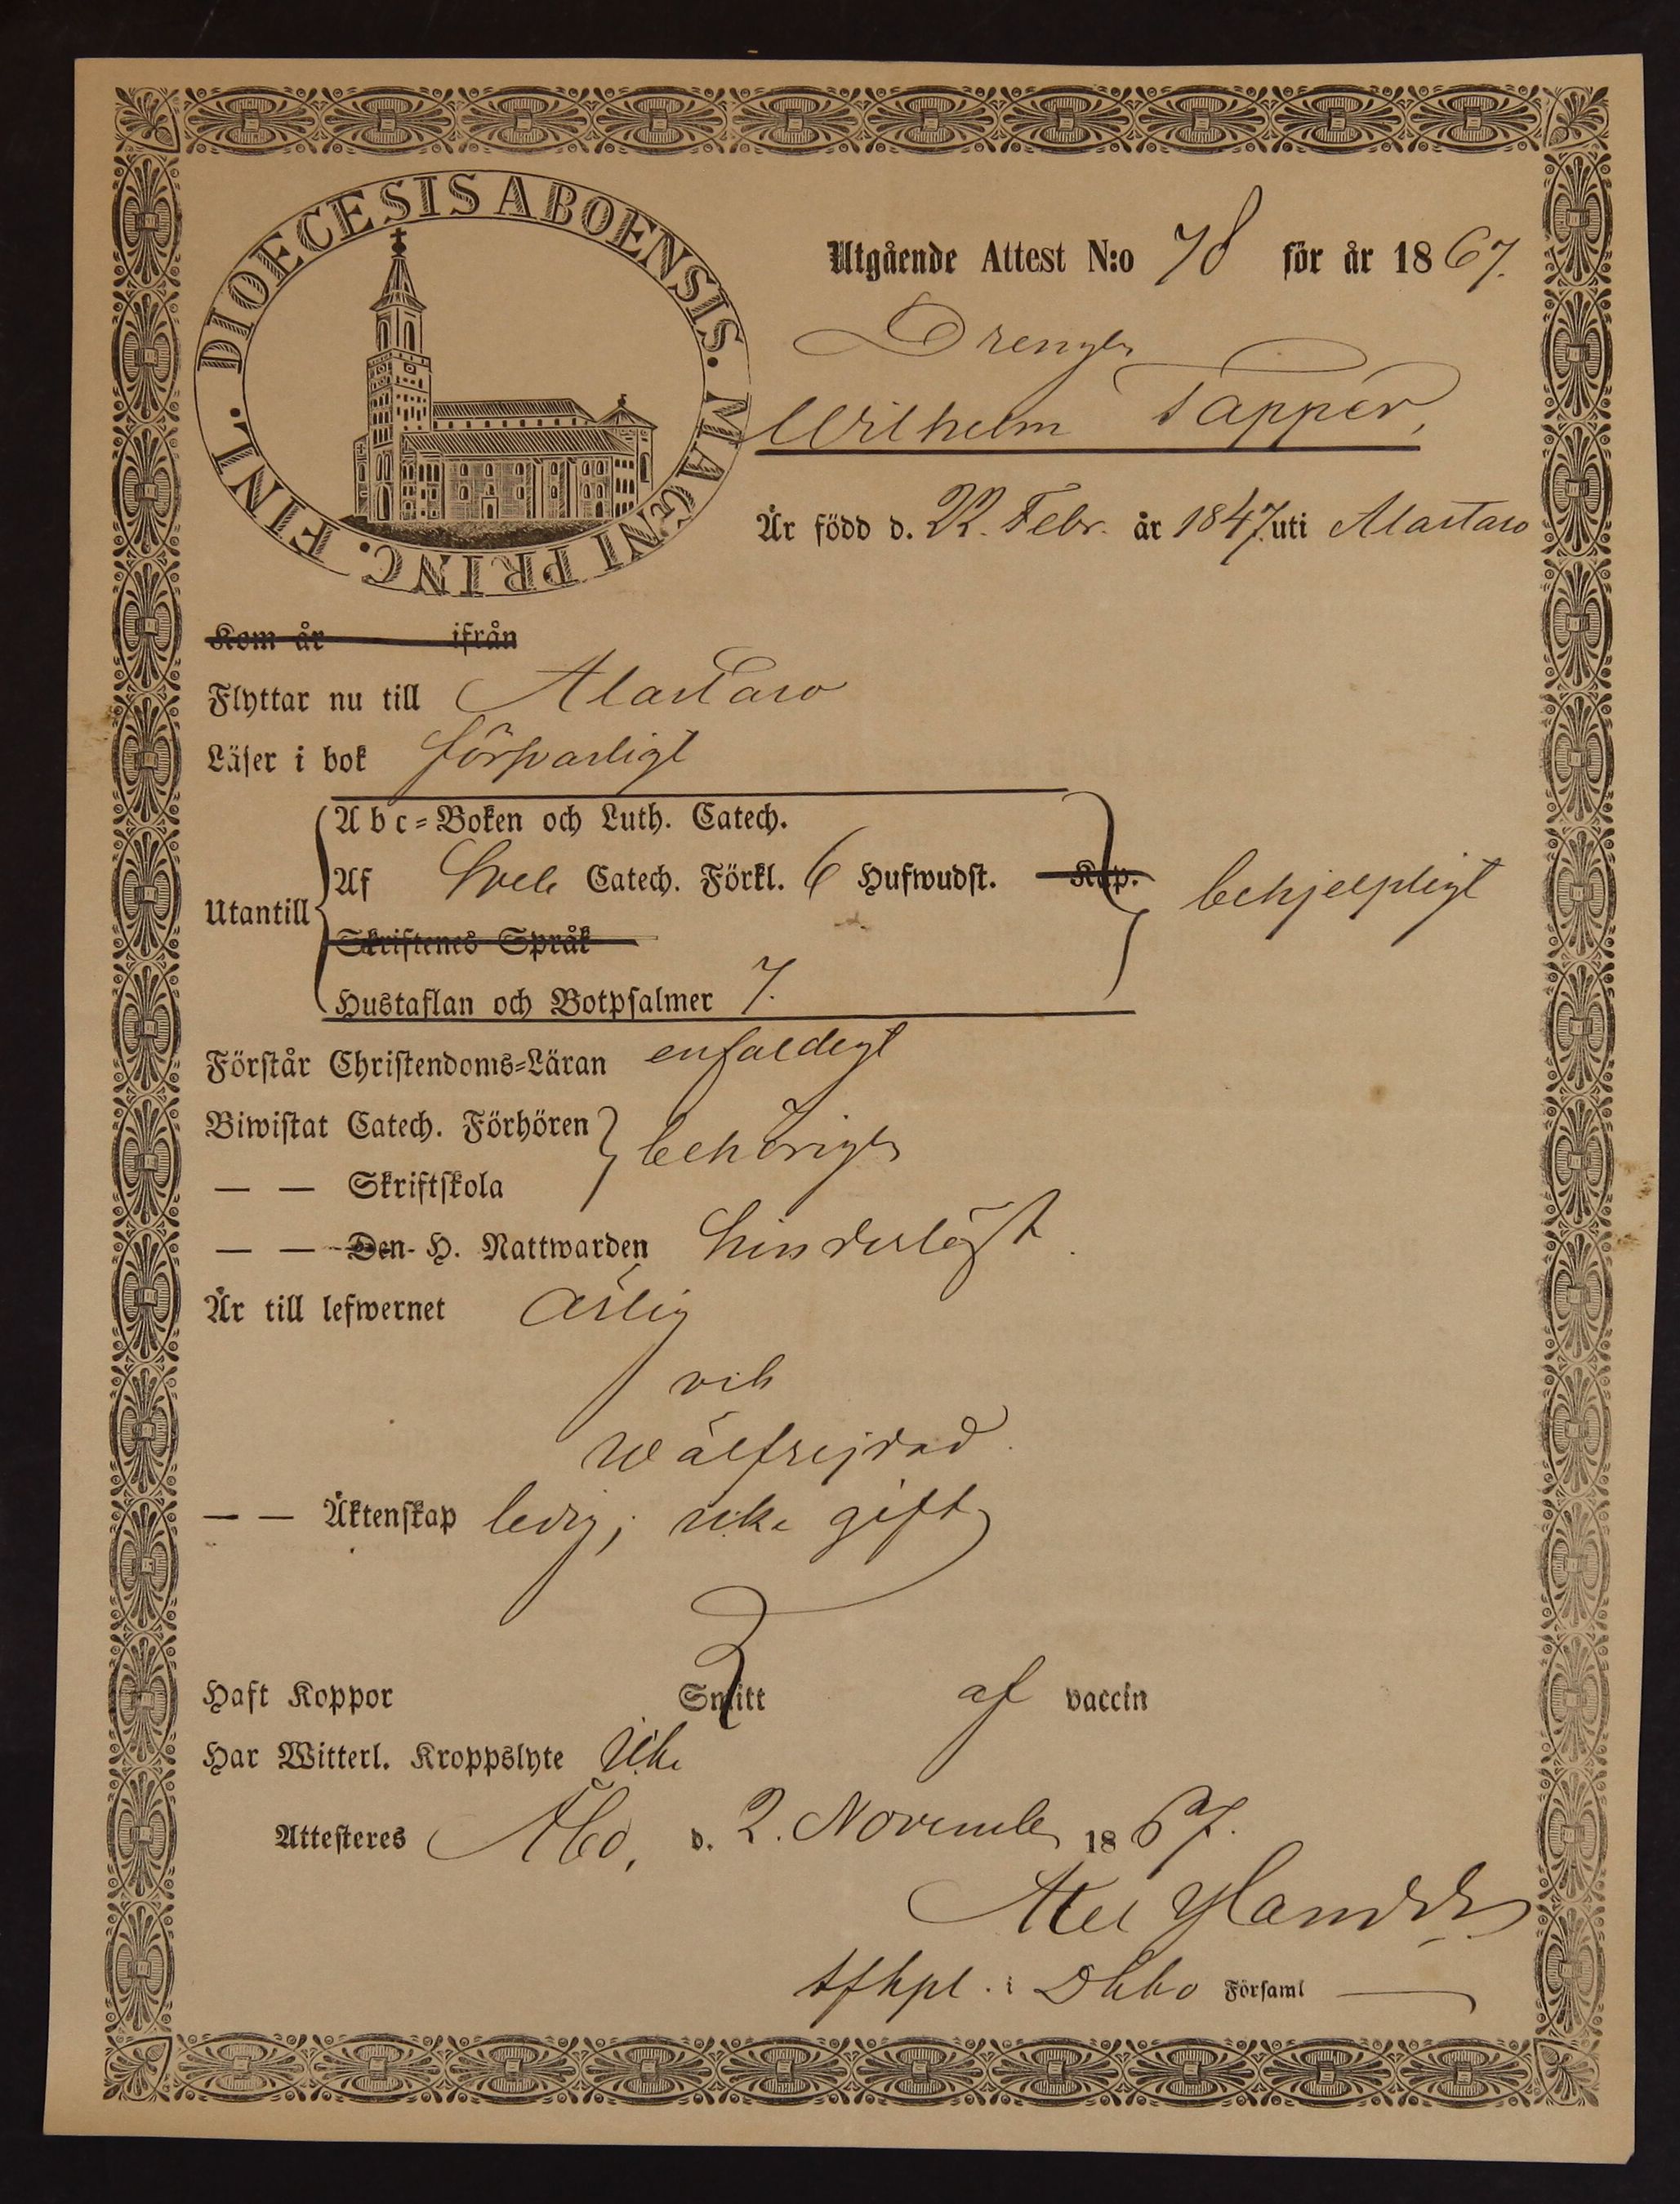 DIOECESIS ABOENSIS. MAGNI PRINC. FINL.
Utgående Attest N:o 78 för år 1867.
Drengen
Wilhelm Tapper,
Är född d. 22. Febr. år 1847. uti Alastaro
Kom år ifrån
Flyttar nu till Alastaro
Läser i bok försvarligt
Abc-Boken och Luth. Catech.
Af Sveb. Catech. Förkl. 6 Hufwudst. Kap.
Utantill behjelpligt
Skriftenes Språk
Hustaflan och Botpsalmer 7.
Förstår Christendoms-Läran enfaldigt
Biwistat Catech. Förhören behörigen
— — Skriftskola
— — Den H. Nattwarden hinderlöst.
Är till lefwernet ärlig
och
wälfrejdad.
— — Äktenskap ledig; icke gift
Haft Koppor Smitt af vaccin
Har Witterl. Kroppslyte icke
Attesteres Åbo, d. 2. November 1867.
Axel
i Församl